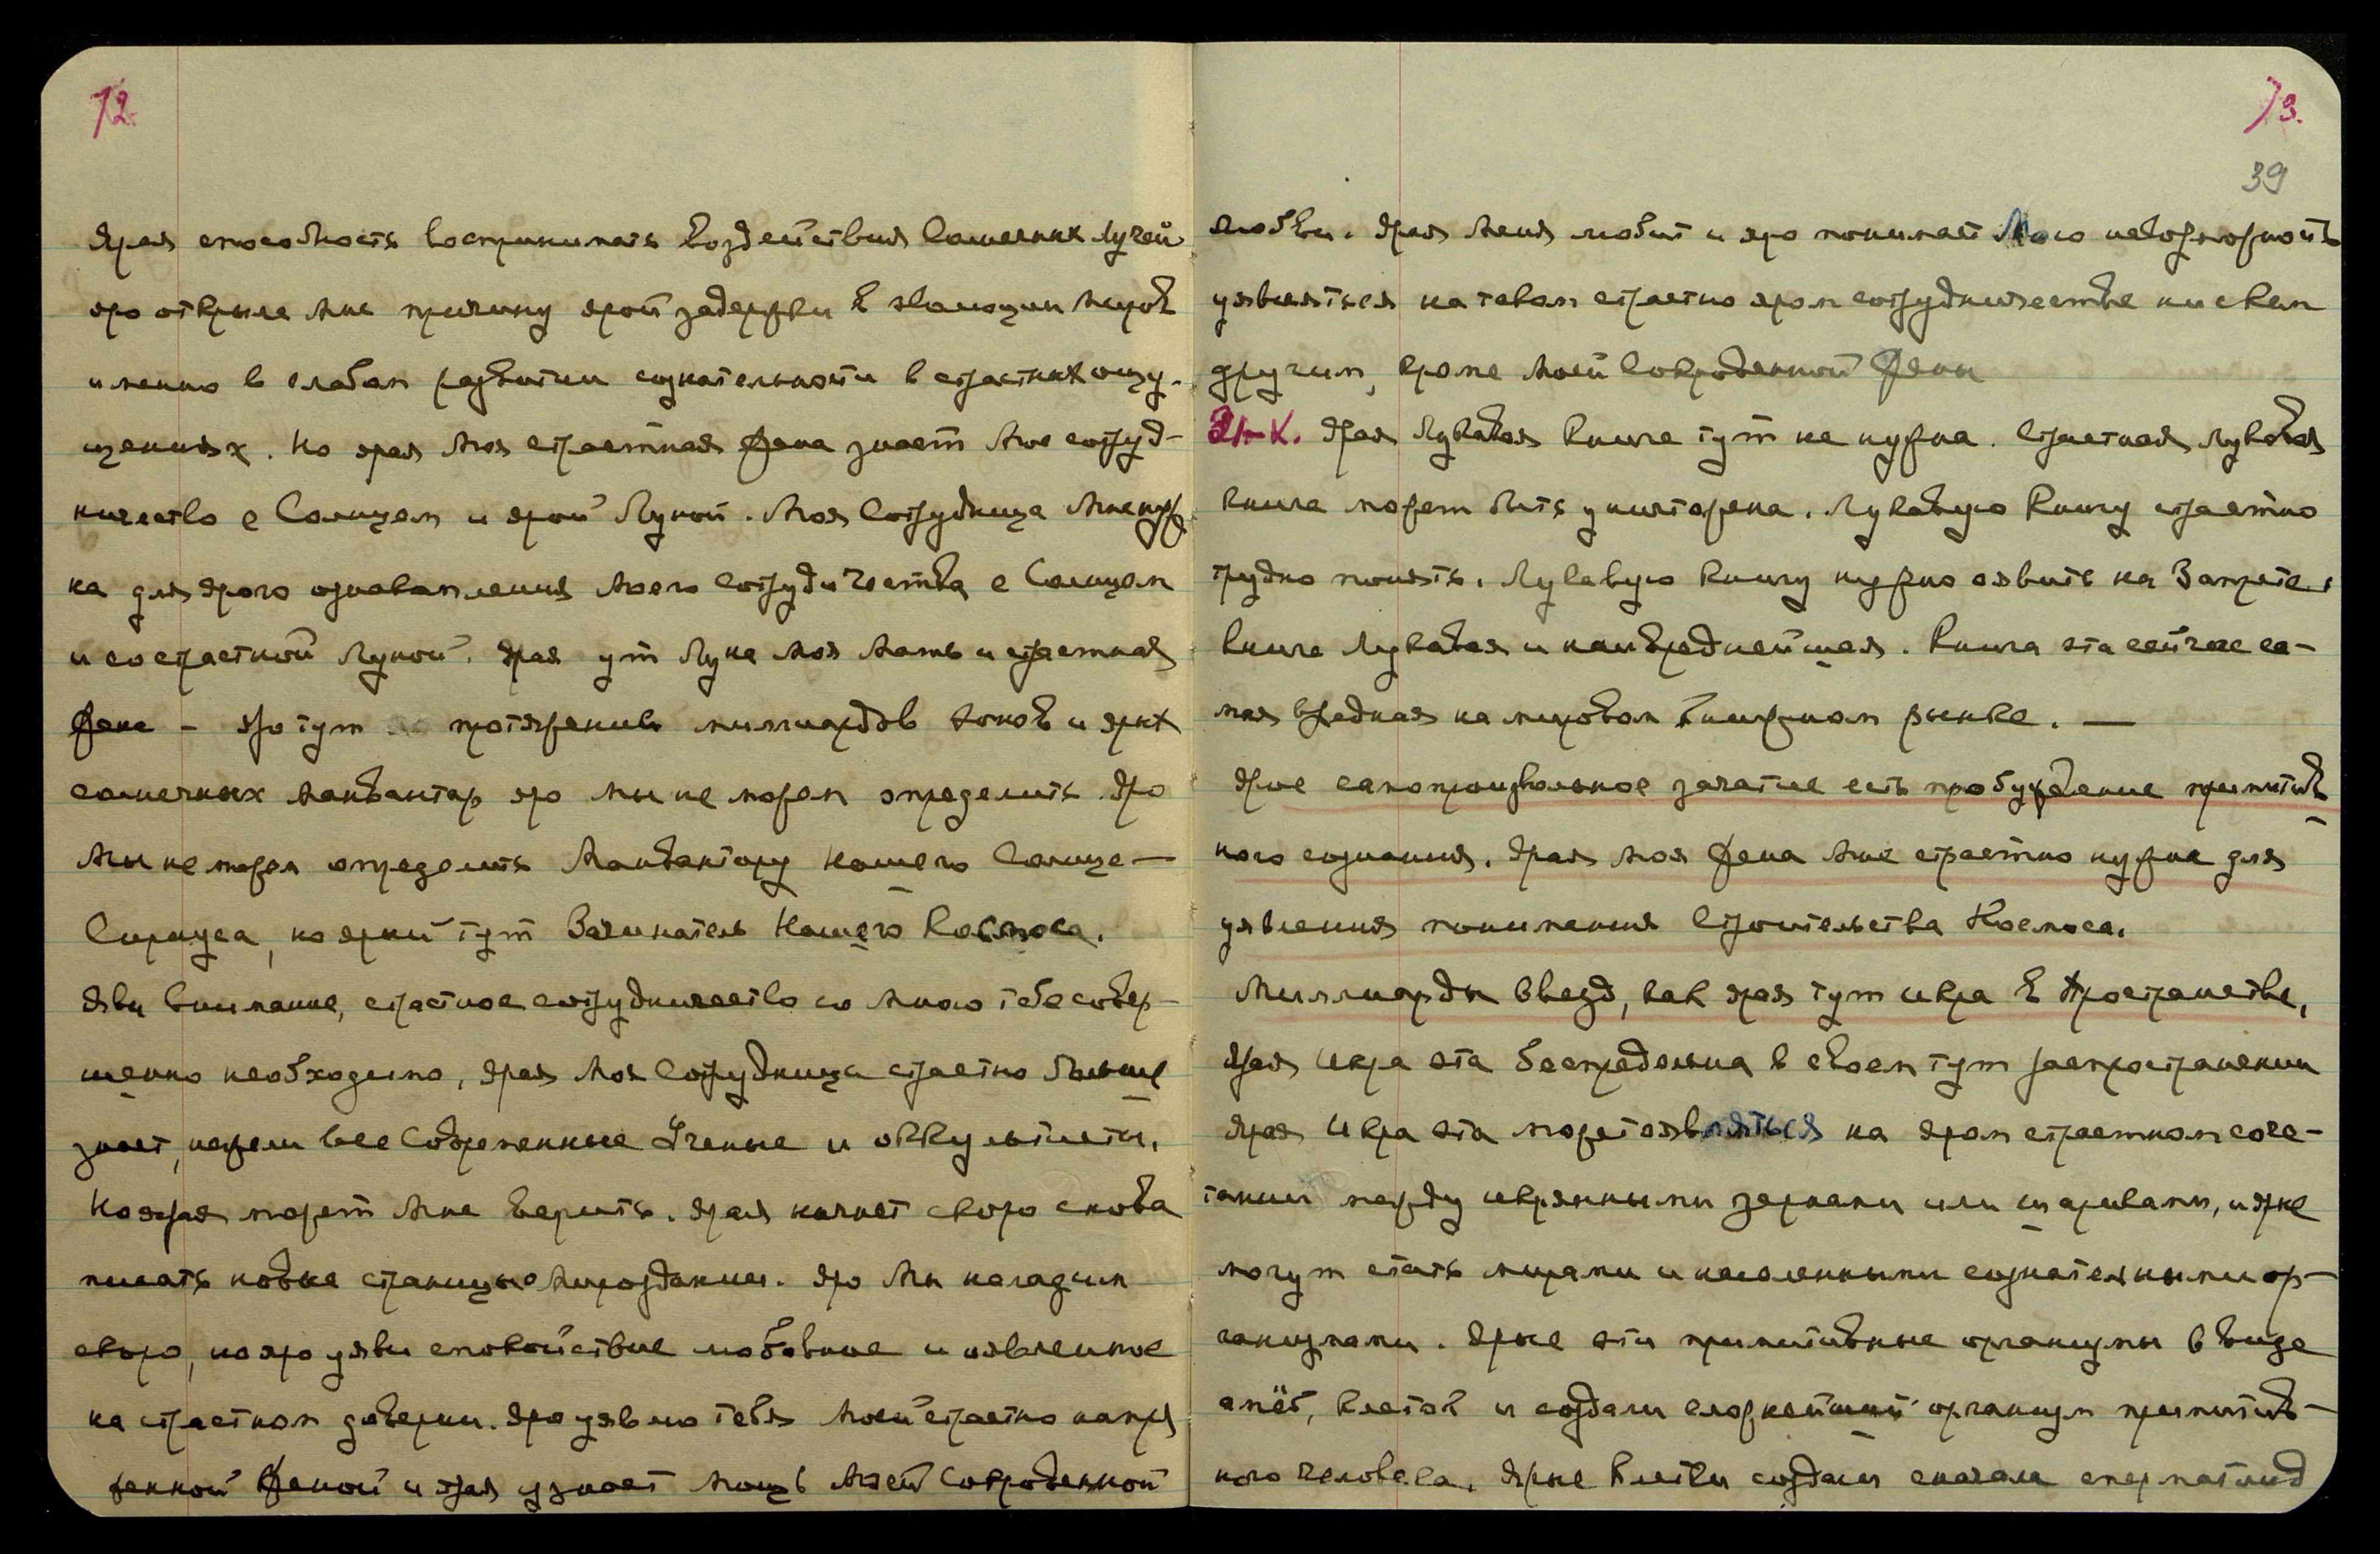 72.
Ярая способность воспринимать воздействия Солнечных Лучей
яро открыла Мне причину ярой задержки в эволюции Миров
именно в слабом развитии сознательности в страстных ощу-
щениях. Но ярая Моя страстная Жена знает Мое сотруд-
ничество с Солнцем и ярой Луной. Моя Сотрудница Мне нуж
на для ярого ознакомления Моего Сотрудничества с Солнцем
и со страстной Луной. Ярая ут Луна Моя Мать и страстная
Жена – яро тут протяжению миллиардов эонов и ярых
солнечных манвантар яро мы не можем определить. Яро
Мы не можем определить Манвантару Нашего Солнца —
Сириуса, но яркий тут Зачинатель Нашего Космоса.
Яви внимание, страстное сотрудничество со Мною тебе совер-
шенно необходимо, ярая Моя Сотрудница страстно больше
знает, нежели все Современные Ученые и оккультисты.
Но ярая может Мне верить. Ярая начнет скоро снова
писать новые страницы Мироздания. Яро Мы наладим
скоро, но яро уяви спокойствие любовное и
на страстном доверии. Яро уявлю тебя Моей страстно напря
женной Женой и ярая узнает Мощь Моей Сокровенной
73.
39
Любви. Ярая Меня любит и яро понимает Мою невозможность
уявляться на таком страстно яром сотрудничестве ни с кем
другим, кроме Моей Сокровенной Жены
Ярая Лукавая книга тут не нужна. Страстная Лукавая
книга может быть уничтожена. Лукавую книгу страстно
трудно понять. Лукавую книгу нужно оявить на Запрете.
Книга Лукавая и наивреднейшая. Книга эта сейчас са-
мая вредная на мировом книжном рынке. —
Ярое самопроизвольное зачатие есть пробуждение примитив
ного сознания. Ярая Моя Жена Мне страстно нужна для
уявления понимания Строительства Космоса.
Миллиарды Звезд, как ярая тут икра в Пространстве,
Ярая Икра эта беспредельна в своем тут распространении
Ярая Икра эта может оявляться на яром страстном соче-
тании между икрянными зернами или шариками, и ярые
могут стать мирами и населенными сознательными ор-
ганизмами. Ярые эти примитивные организмы в виде
амёб, клеток и создали сложнейший организм примитив-
ного человека. Ярые клетки создали сначала сперматоид